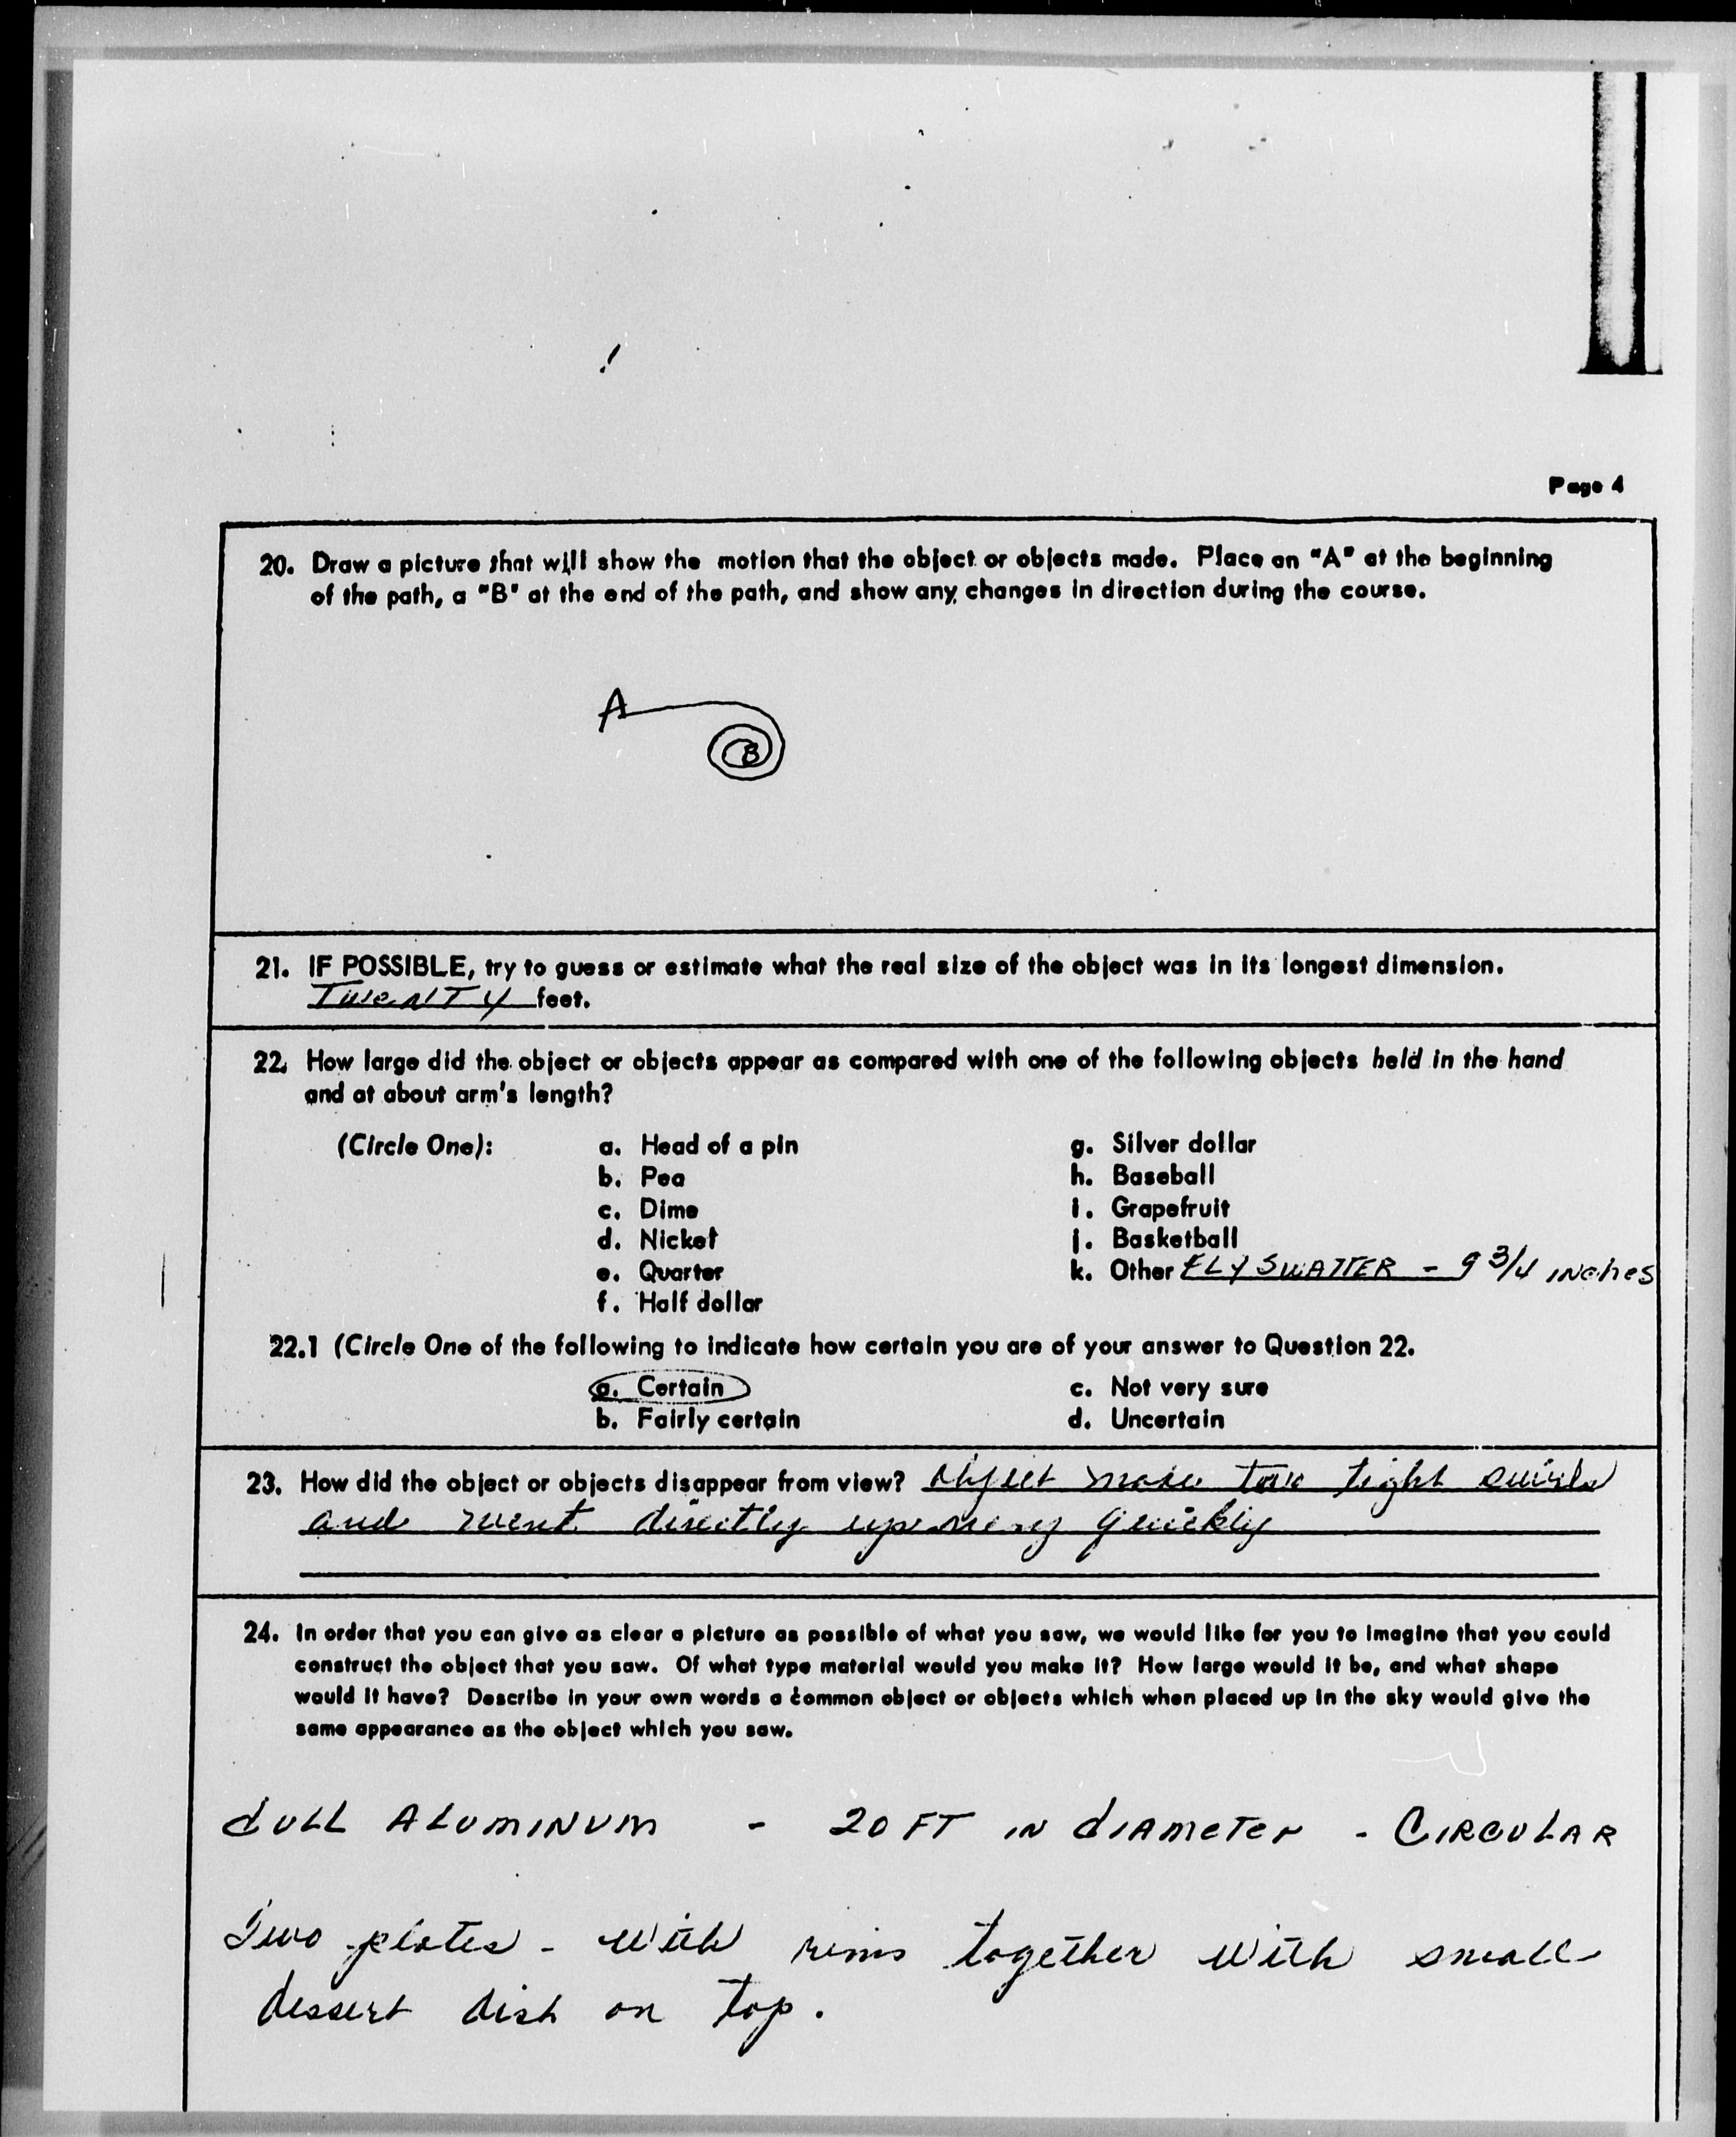 Page 4
20. Draw a picture that will show the motion that the object or objects made. Place an "A" at the beginning
of the path, a "B" at the end of the path, and show any changes in direction during the course.
A
B
21. IF POSSIBLE, try to guess or estimate what the real size of the object was in its longest dimension.
TweNTy feet.
22. How large did the object or objects appear as compared with one of the following objects held in the hand
and at about arm's length?
(Circle One): a. Head of a pin g. Silver dollar
b. Pea h. Baseball
c. Dime i. Grapefruit
d. Nickel j. Basketball
e. Quarter k. Other FLY SWATTER - 9 3/4 INches
f. Half dollar
22.1 (Circle One of the following to indicate how certain you are of your answer to Question 22.
a. Certain c. Not very sure
b. Fairly certain d. Uncertain
23. How did the object or objects disappear from view? Object made two tight swirls
and went directly up very quickly
24. In order that you can give as clear a picture as possible of what you saw, we would like for you to imagine that you could
construct the object that you saw. Of what type material would you make it? How large would it be, and what shape
would it have? Describe in your own words a common object or objects which when placed up in the sky would give the
same appearance as the object which you saw.
dULL ALUMINUM - 20 FT IN dIAMeTer - CIRCULAR
Two plates - with rims together with small
dessert dish on top.